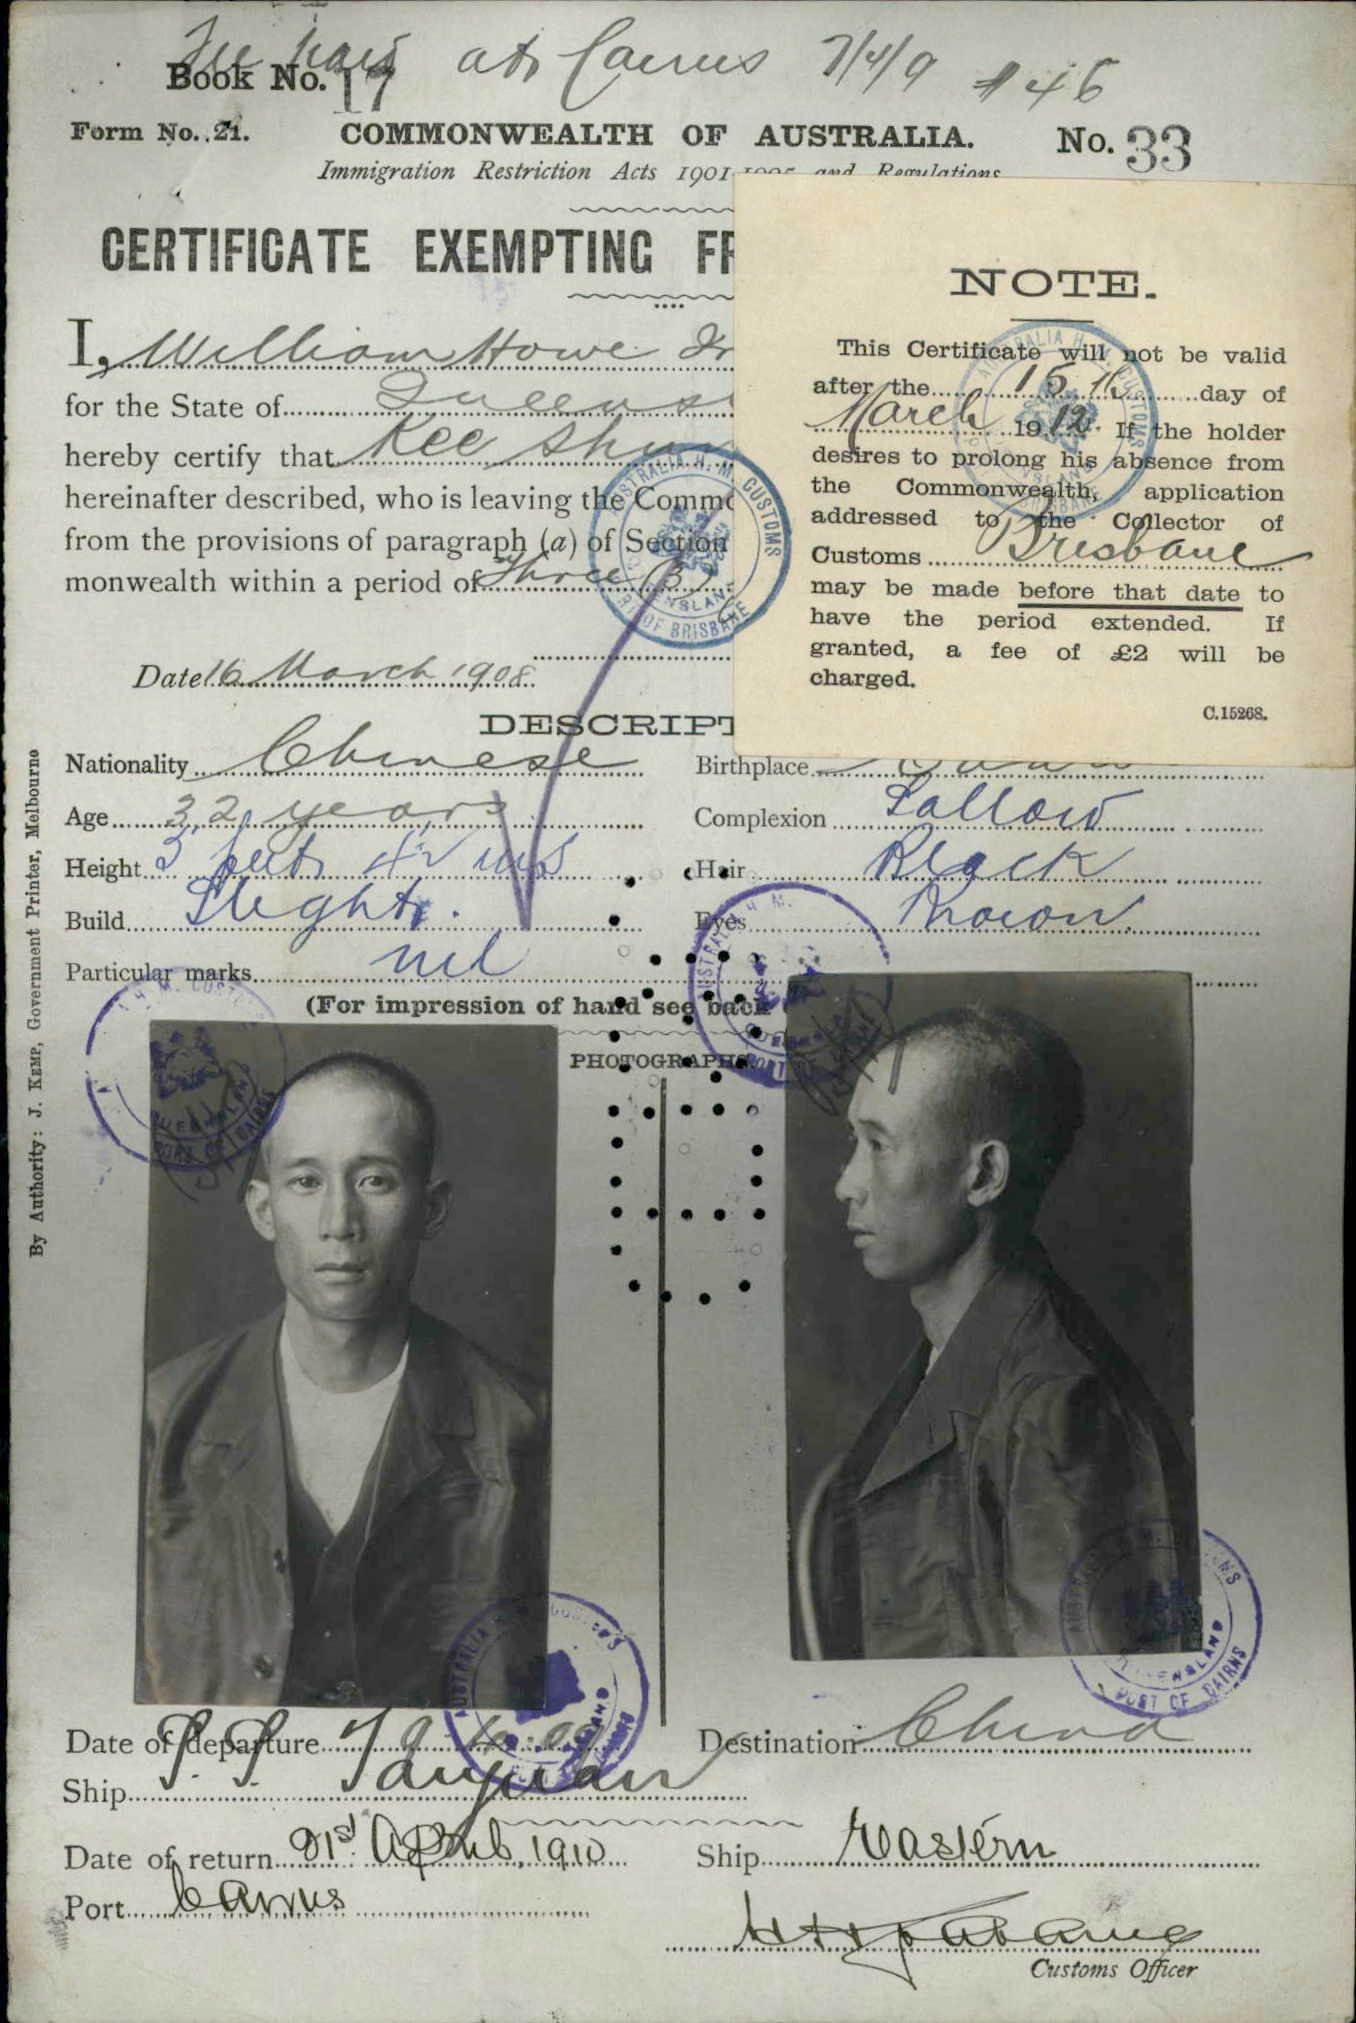 at Cairns 7/4/9 #46
Book No. 17
Form No. 21. COMMONWEALTH OF AUSTRALIA. No. 33
Immigration Restriction Acts 1901-1905 and Regulations
CERTIFICATE EXEMPTING FR
I, William Howe
for the State of Queens
hereby certify that Kee Shu
hereinafter described, who is leaving the Commo
from the provisions of paragraph (a) of Section
monwealth within a period of Three (3)
Date 16 March 1908
NOTE.
This Certificate will not be valid
after the 15th day of
March 1912. If the holder
desires to prolong his absence from
the Commonwealth, application
addressed to the Collector of
Customs Brisbane
may be made before that date to
have the period extended. If
granted, a fee of £2 will be
charged.
C.15268.
AUSTRALIA H. M. CUSTOMS
QUEENSLAND
PORT OF BRISBANE
DESCRIPT
Nationality Chinese Birthplace
Age 32 years Complexion Sallow
Height 5 feet 4½ ins Hair Black
Build Slight. Eyes Brown.
Particular marks nil
(For impression of hand see back
PHOTOGRAPHS
By Authority: J. KEMP, Government Printer, Melbourne
AUSTRALIA H. M. CUSTOMS
QUEENSLAND
PORT OF CAIRNS
Date of departure Destination China
Ship S. S. Taiyuan
Date of return 21st April, 1910 Ship Eastern
Port Cairns
Customs Officer